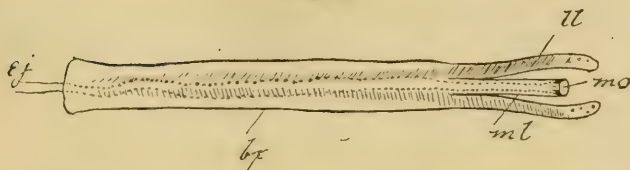 ll
ej
mo
ml
bp